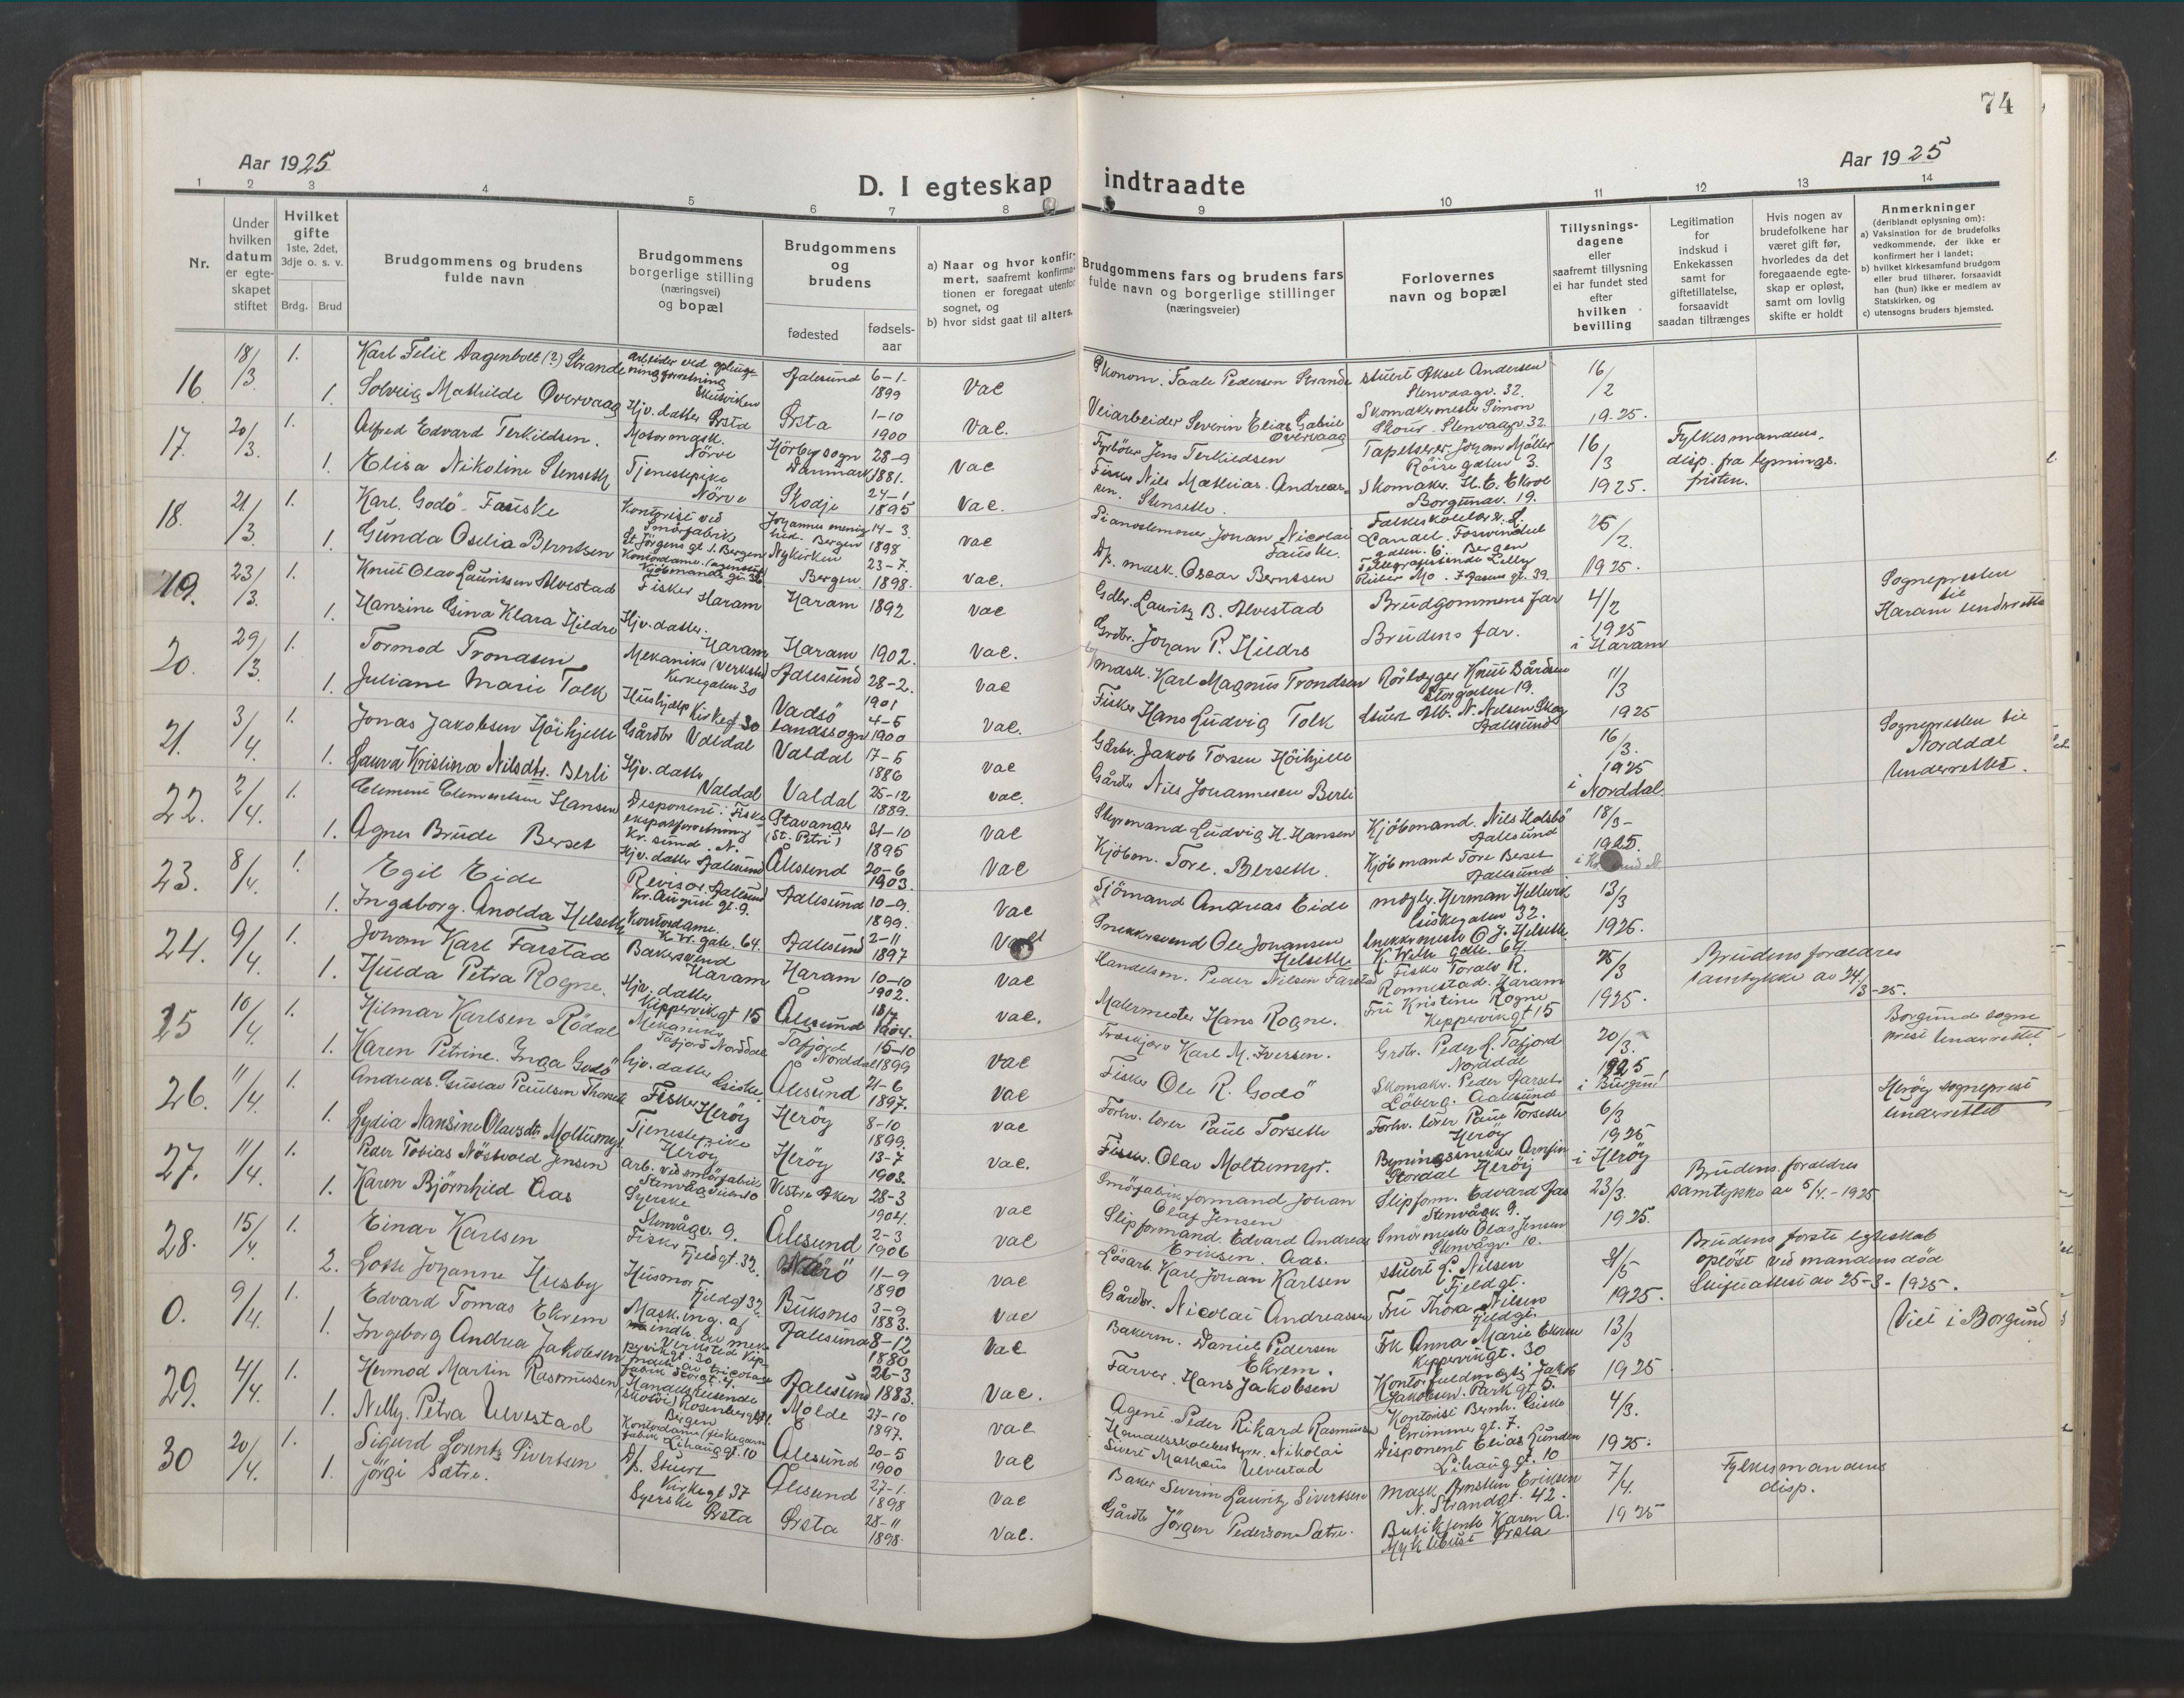 74
Aar 1925
Aar 1925
D. I egteskap indtraadte
1 2 3 4 5 6 7 8 9 10 11 12 13 14
Nr.
Under
hvilken
datum
er egte-
skapet
stiftet
Hvilket
gifte
1ste, 2det,
3dje o. s. v.
Brdg. Brud
Brudgommens og brudens
fulde navn
Brudgommens
borgerlige stilling
(næringsvei)
og bopæl
Brudgommens
og
brudens
fødested
fødsels-
aar
a) Naar og hvor konfir-
mert, saafremt konfirma-
tionen er foregaat utenfor
sognet, og
b) hvor sidst gaat til alters.
Brudgommens fars og brudens fars
fulde navn og borgerlige stillinger
(næringsveier)
Forlovernes
navn og bopæl
Tillysnings-
dagene
eller
saafremt tillysning
ei har fundet sted
efter
hvilken
bevilling
Legitimation
for
indskud i
Enkekassen
samt for
giftetillatelse,
forsaavidt
saadan tiltrænges
Hvis nogen av
brudefolkene har
været gift før,
hvorledes da det
foregaaende egte-
skap er opløst,
samt om lovlig
skifte er holdt
Anmerkninger
(deriblandt oplysning om):
a) Vaksination for de brudefolks
vedkommende, der ikke er
konfirmert her i landet;
b) hvilket kirkesamfund brudgom
eller brud tilhører, forsaavidt
han (hun) ikke er medlem av
Statskirken, og
c) utensogns bruders hjemsted.
16 18/3 1. Karl Felix Dagenbolt (?) Strande Aalesund 6-1-1899 vac Økonom. Taale Pedersen Strande Stuert Aksel Andersen Stenvaagv. 32. 16/2
1. Solveig Mathilde Overvaag Hjv. datter Ørsta Ørsta 1-10 1900 vac. Veiarbeider Severin Elias Gabriel Overvaag Skomakermester Simon Skour Stenvaagv. 32 1925.
17. 20/3 1. Alfred Edvard Terkildsen. Motormask. Nörve Hörby sogn Danmark 28-9 1881. vac Fyrböter Jens Terkildsen Tapetserer Johan Möller Röisegaten 3. 16/3 Fylkesmandens disp. fra lysnings. fristen.
1. Elisa Nikoline Stenseth Tjenestepike Nörve Skodje 24-1 1895 vac. Fisker Nils Mathias Andreassen. Stenseth. Skomaker H. E. Ekroe Borgundv. 19. 1925.
18. 21/3 1. Karl. Godö-Fauske Kontorist ved Smörfabrik St Jörgens gt 1. Bergen Johannes menighed. Bergen 14-3 1898 vac Pianostemmer Johan Nicolai Fauske 25/2.
1. Gunda Oselia Berntsen Nykirken Bergen 23-7. 1898. vac. D/s. mask. Oscar Berntsen 1925.
19. 23/3. 1. Knut Olav Lauritsen Alvestad Fisker Haram Haram 1892 vac Gdbr. Lauritz B. Alvestad Brudgommens far 4/2 Sognepresten til Haram underrettet
1. Hansine Gina Klara Hildre Hjv. datter. Haram Haram 1902. vac. Grdbr. Johan P. Hildre Brudens far. 1925 i Haram
20. 29/3. 1. Tormod Trondsen Mekaniker (verksted) Kirkegaten 30 Aalesund 28-2. 1901 vac Mask. Karl Magnus Trondsen Rörlægger Knut Bårdsen Storgaten 19. 11/3
1. Juliane Marie Tolk Hushjælp Kirkegt 30 Vadsö Landssogn 4-5 1900 vac. Fisker Hans Ludvig Tolk Stuert Alb. N. Nilsen Skog Aalesund 1925
21. 3/4 1. Jonas Jakobsen Höihjelle Gårdbr Valdal Valdal 17-5 1886 vac Gårbr. Jakob Torsen Höihjelle 16/3. 1925 Sognepresten til Norddal Underrettet.
1. Laura Kristina Nilsdtr. Berli Hjv. datter Valdal Valdal 25-12 1889. vac. Gårdbr Nils Johannesen Berli i Norddal.
22. 2/4. 1. Clement Clementsen Hansen Disponent i Fiske eksportforretning Kr. sund. N. Stavanger (St. Petri) 31-10 1895 vac Styrmand Ludvig H. Hansen Kjöbmand. Nils Holsbö Aalesund 18/3-
1. Agnes Brude Berset Hjv. datter Aalesund Ålesund 20-6 1903. vac Kjöbm. Tore. Berseth. Kjöbmand Tore Berset Aalesund 1925.
23. 8/4. 1. Egil Eide Revisor. Aalesund Kr. August gt. 9. Aalesund 10-9. 1899. vac Sjömand Andreas Eide mægler. Herman Hellevik Giskegaten 32. 13/3
1. Ingeborg. Anolda Helseth Kontordame. K. W. gate. 64. Aalesund 2-11 1897 Snekkersvend Ole Johansen Helseth Snekkermester O. J. Helseth. K. Welh gate. 64. 1925.
24. 9/4. 1. Johan Karl Farstad Bakersvend Haram Haram 10-10 1902. vac Handelsm. Peder Nilsen Farstad Fisker Toralv R. Rönnestad. Haram 25/3 Brudens foraldres samtykke av 24/3-25.
1. Hulda Petra Rogne. Hjv. datter Kippervikgt 15 Ålesund 1904. vac. Malermester Hans Rogne. Fru Kristine Rogne Keppervikgt 15 1925.
25 10/4. 1. Hilmar Karlsen Rödal Mekaniker Tafjord Norddal Tafjord Norddal 15-10 1899 vac Karl M. Iversen. Grdbr. Peder L. Tafjord Norddal 20/3. Borgund sogneprest underrettet
1. Karen Petrine. Inga Godö hjv. datter Giske. Ålesund 21-6 1897. vac Fisker Ole R. Godö Skomaker. Peder Löberg. Aalesund 1925 i Borgund
26. 11/4. 1. Andreas. Gustav Paulsen Thorseth Fisker Heröy Heröy 8-10 1899. vac Forhv. lærer Paul Torseth Forhv. lærer Paul Torseth Heröy 6/3 1925 Heröy sogneprest underrettet
1. Lydia Nansine Olavsdtr Moltumyr. Tjenestepike Heröy Heröy 13-7 1903. vac. Fisker. Olav Moltumyr. Bygningssnekker Arnfin Stordal Heröy i Heröy
27. 11/4. 1. Peder Tobias Nöstvold Jensen Arb. ved smörfabrik Vestre Aker 28-3 1904. vac Smörfabrik formand Johan Olaf Jensen Slipform. Edvard Aas Stenvågv. 9. 23/3. Brudens foraldres samtykke av 5/4.-1925
1. Karen Björnhild Aas Syerske Stenvågv. 9. Ålesund 2-3 1906 vac Slipformand. Edvard Andreas Eriksen. Aas. Smörmester Olaf Jensen Stenvågv. 10. 1925.
28. 15/4. 1. Einar Karlsen Fisker Fjeldgt. 32. Nærö 11-9 1890 vac Lösarb. Karl Johan Karlsen Stuert L. Nilsen Fjeldgt. Brudens forste egteskab oplöst ved mandens död
2. Lotte Johanne Husby Husmor Fjeldgt 32. Buksnes 3-9 1883. vac Gårdbr. Nicolai Andreassen Fru Thora Nilsen Fjeldgt. 1925. Skifteattest av 25-3-1925.
0. 9/4. 1. Edvard Tomas Ekrem Aalesund 8-12 1880 vac Bakerm. Daniel Pedersen Ekrem. Frk Anna Marie Ekrem Keppervikgt. 30 13/3 Viet i Borgund
1. Ingeborg Andrea Jakobsen Aalesund 26-3 1883. vac. Farver. Hans Jakobsen Kontorfuldmægtig Jakob Jakobsen. Parkgt 5. 1925
29. 4/4. 1. Hermod Martin Rasmussen Handelsreisende (skotöi) Bergen Molde 27-10 1897. vac Agent Peder Rikard Rasmussen Kontorist Bernh. Giske Grimmergt. 7. 4/3.
1. Nelly Petra Ulvestad Kontordame Lihauggt. 10 Ålesund 20-5 1900 vac Handelsskolebestyrer. Nikolai Sivert Mathæus Ulvestad Disponent Elias Lunden Lihauggt. 10 1925.
30 20/4. 1. Sigurd Lorentz Sivertsen D/s. Stuert Kirkegt 37 Ålesund 27-1. 1898 vac Baker Severin Lauritz Sivertsen Mask. Arnstein Eriksen N. Strandgt. 42. 7/4. Fylkesmandens disp.
1. Jörgi Sætre. Syerske Ørsta Ørsta 28-11 1898. vac. Gårdbr Jörgen Pederson Sætre. Karen A. Myklebust Ørsta 1925